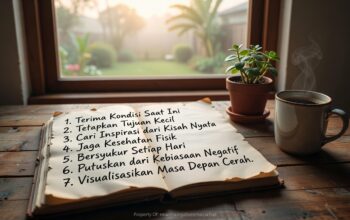 1. Terima Kondisi Saat Ini
2. Tetapkan Tujuan Kecil
3. Cari Inspirasi dari Kisah Nyata
4. Jaga Kesehatan Fisik
5. Bersyukur Setiap Hari
6. Putuskan dari Kebiasaan Negatif
7. Visualisasikan Masa Depan Cerah.
Property OF